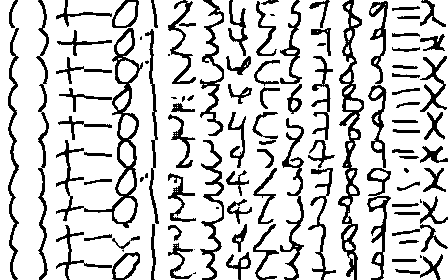 ( ) + - 0 1 2 3 4 5 3 7 8 9 = x
( ) + - 0 1 2 3 4 5 6 7 8 9 = x
( ) + - 0 1 2 3 4 5 3 7 8 9 = x
( ) + - 0 1 3 4 5 6 7 8 9 = x
( ) + - 0 1 2 3 4 5 6 7 8 9 = x
( ) + - 0 1 2 3 4 5 6 7 8 9 = x
( ) + - 0 1 2 3 4 3 7 8 9 = x
( ) + - 0 1 2 3 4 3 7 8 9 = x
( ) + - 1 2 3 4 3 7 8 9 = x
( ) + - 0 1 2 3 4 3 7 8 9 = x